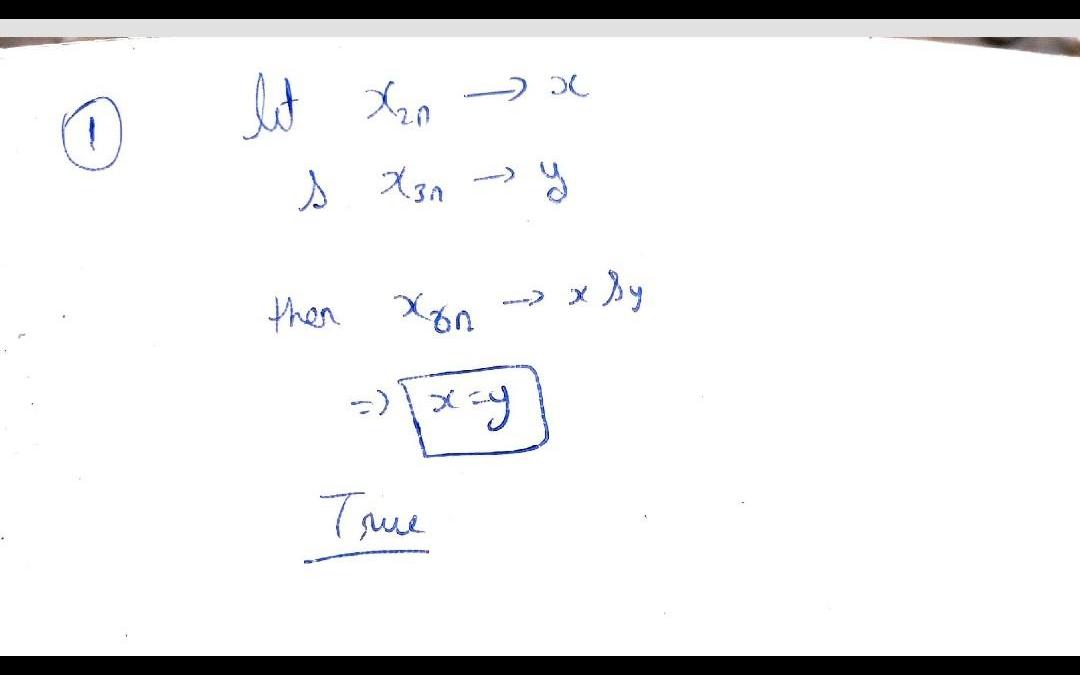 ① let x₂ₙ → x
& x₃ₙ → y
then x₆ₙ → x & y
=> x = y
True